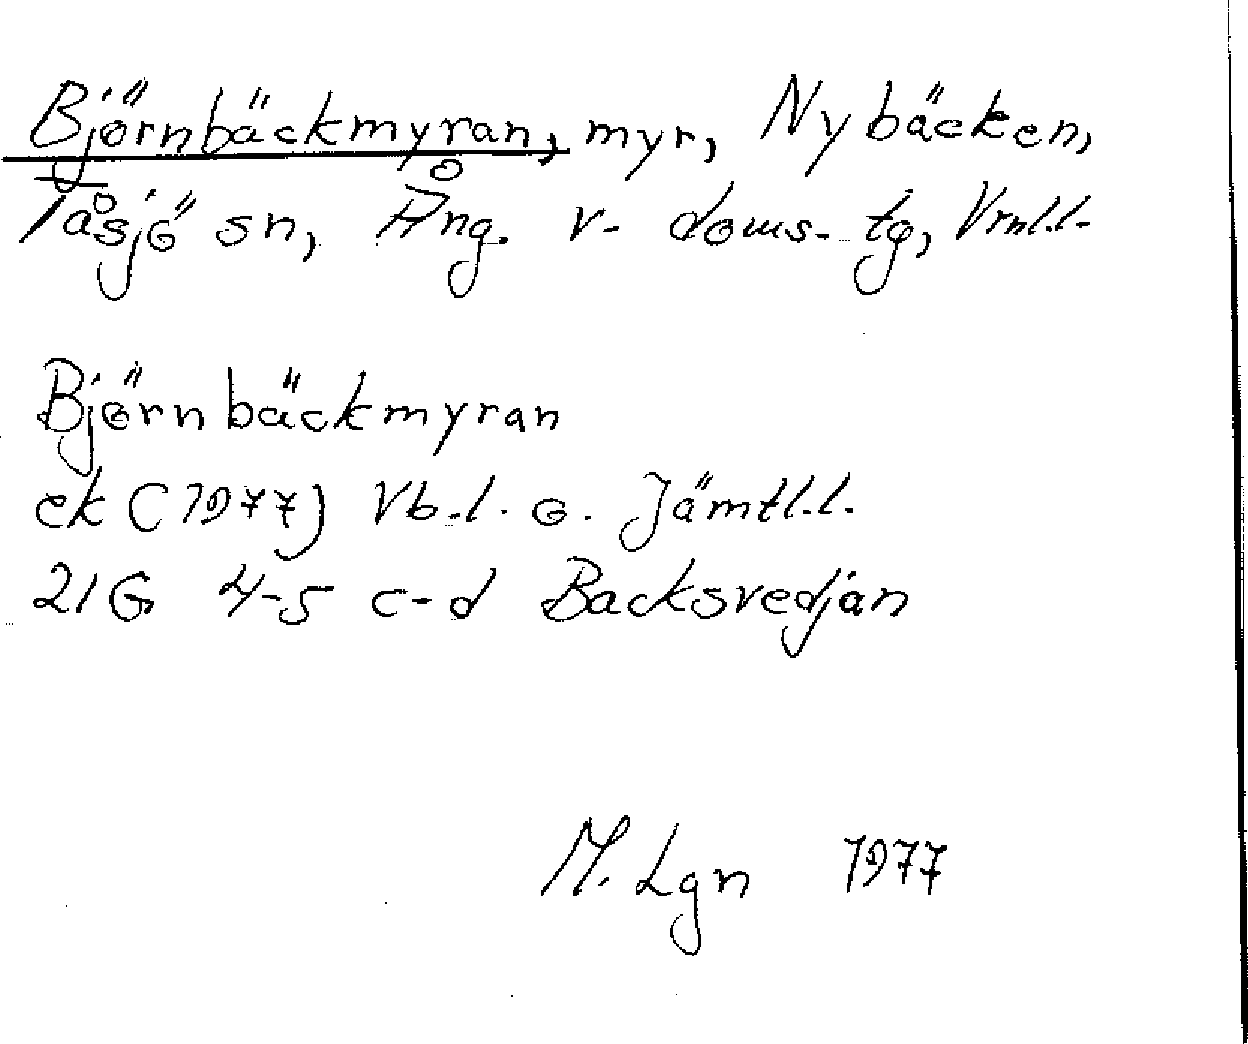 Björnbäckmyran, myr, Nybäcken,
Tåsjö sn, Ång. v. doms. tg, Vrml.l.
Björnbäckmyran
ek (1977) Vb.l. o. Jämtl.l.
21G 4-5 c-d Backsvedjan
M. Lgn 1977